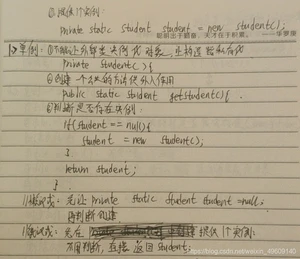 ② 提供1个实例:
private static Student student = new Student();
聪明出于勤奋，天才在于积累。 ——华罗庚
private Student(){
}
② 创建一个公共的方法供别人使用
public static Student getStudent(){
③ 判断是否存在实例:
if(student == null){
student = new Student();
}
return student;
}
private static Student student = null;
再判断创建
提供1个实例,
不用判断, 直接返回student;
https://blog.csdn.net/weixin_49600140